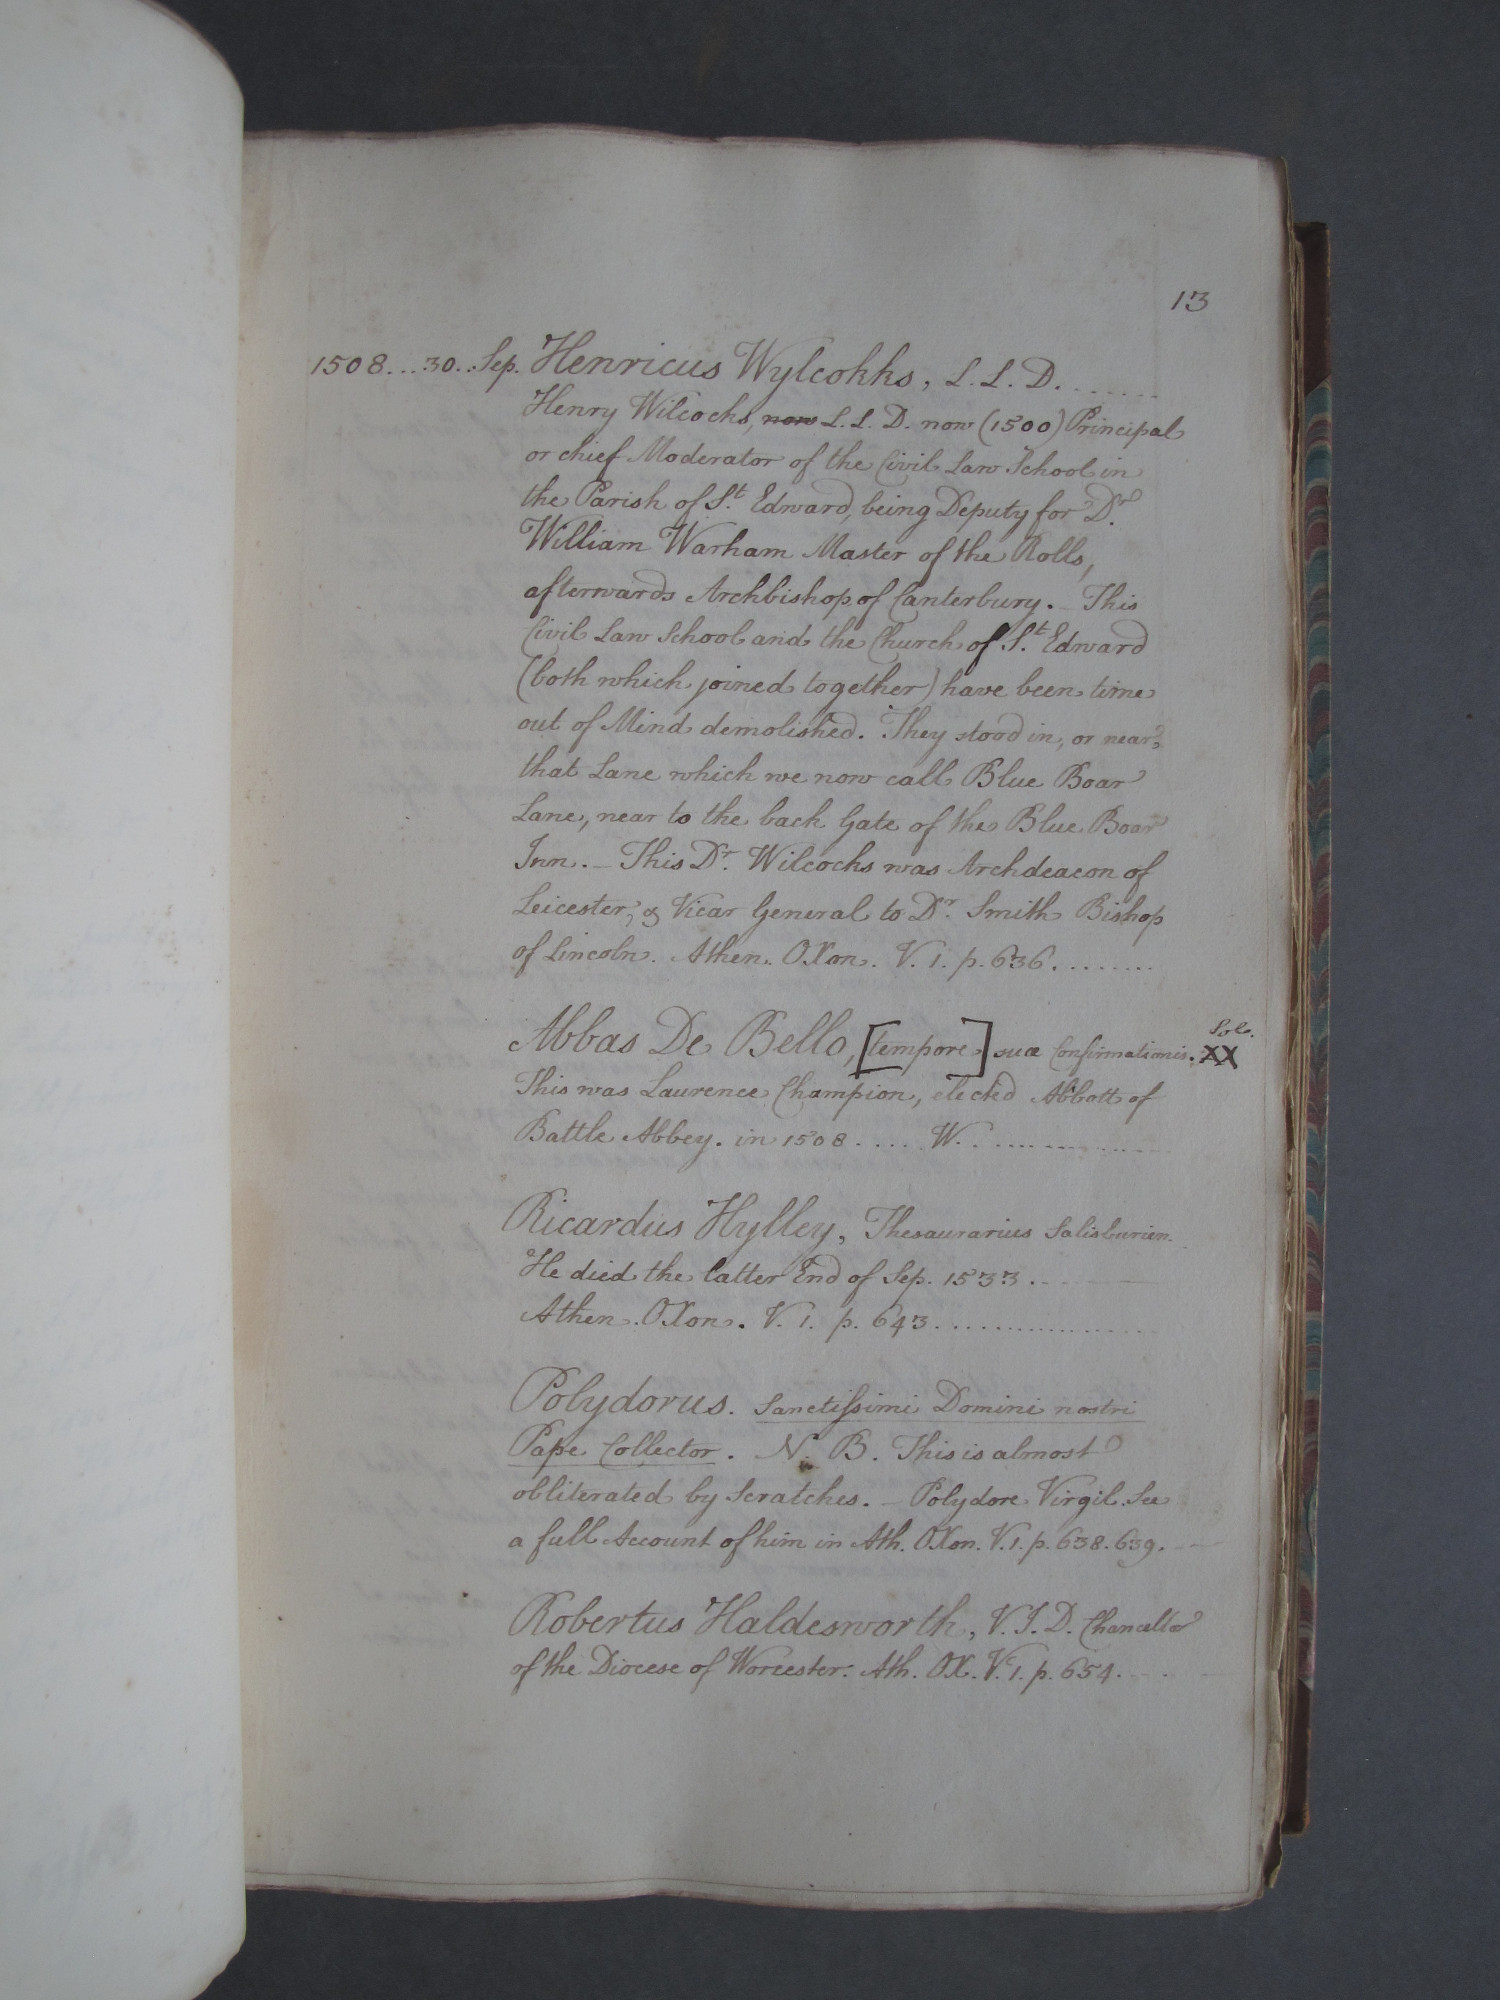 13
1508...30..Sep. Henricus Wylcokks, L.L.D.......
Henry Wilcocks, now L.L.D. now (1500) Principal
or chief Moderator of the Civil Law School in
the Parish of St. Edward, being Deputy for Dr.
William Warham Master of the Rolls,
afterwards Archbishop of Canterbury. - This
Civil Law School and the Church of St. Edward
(both which joined together) have been time
out of Mind demolished. They stood in, or near,
that Lane which we now call Blue Boar
Lane, near to the back Gate of the Blue Boar
Inn. - This Dr. Wilcocks was Archdeacon of
Leicester, & Vicar General to Dr. Smith Bishop
of Lincoln. Athen. OXon. V. 1. p. 636........
Abbas De Bello, [tempore] suæ Confirmationis. XX Sol.
This was Laurence Champion, elected Abbott of
Battle Abbey. in 1508 ..... W. ..............
Ricardus Hylley, Thesaurarius Salisburien.
He died the latter End of Sep. 1533.....
Athen. OXon. V. 1. p. 643...................
Polydorus. Sanctissimi Domini nostri
Pape Collector. N. B. This is almost
obliterated by Scratches. - Polydore Virgil. See
a full Account of him in Ath. OXon. V. 1. p. 638. 639.
Robertus Haldesworth, V. J. D. Chancellor
of the Diocese of Worcester. Ath. OX. V. 1. p. 654.....